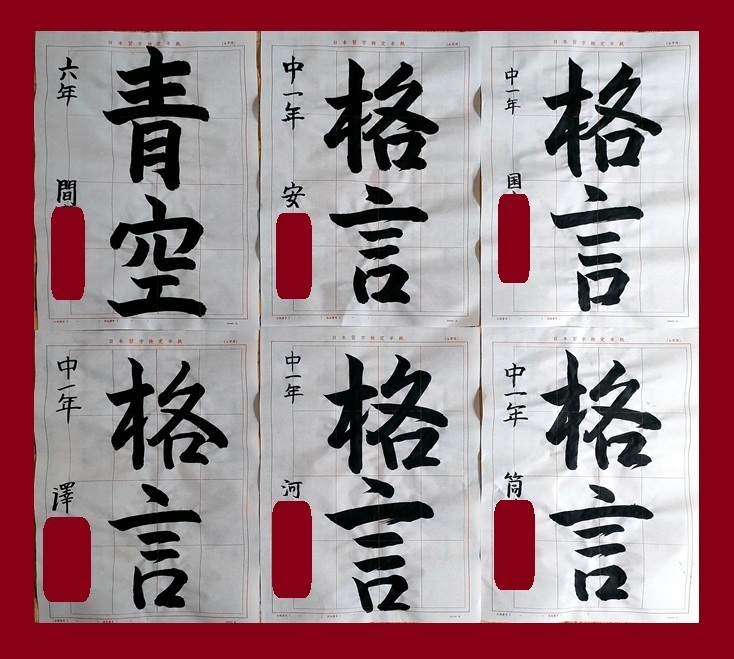 日本習字検定半紙
青空
六年
間
日本習字検定半紙
格言
中一年
安
日本習字検定半紙
格言
中一年
国
日本習字検定半紙
格言
中一年
澤
日本習字検定半紙
格言
中一年
河
日本習字検定半紙
格言
中一年
筒